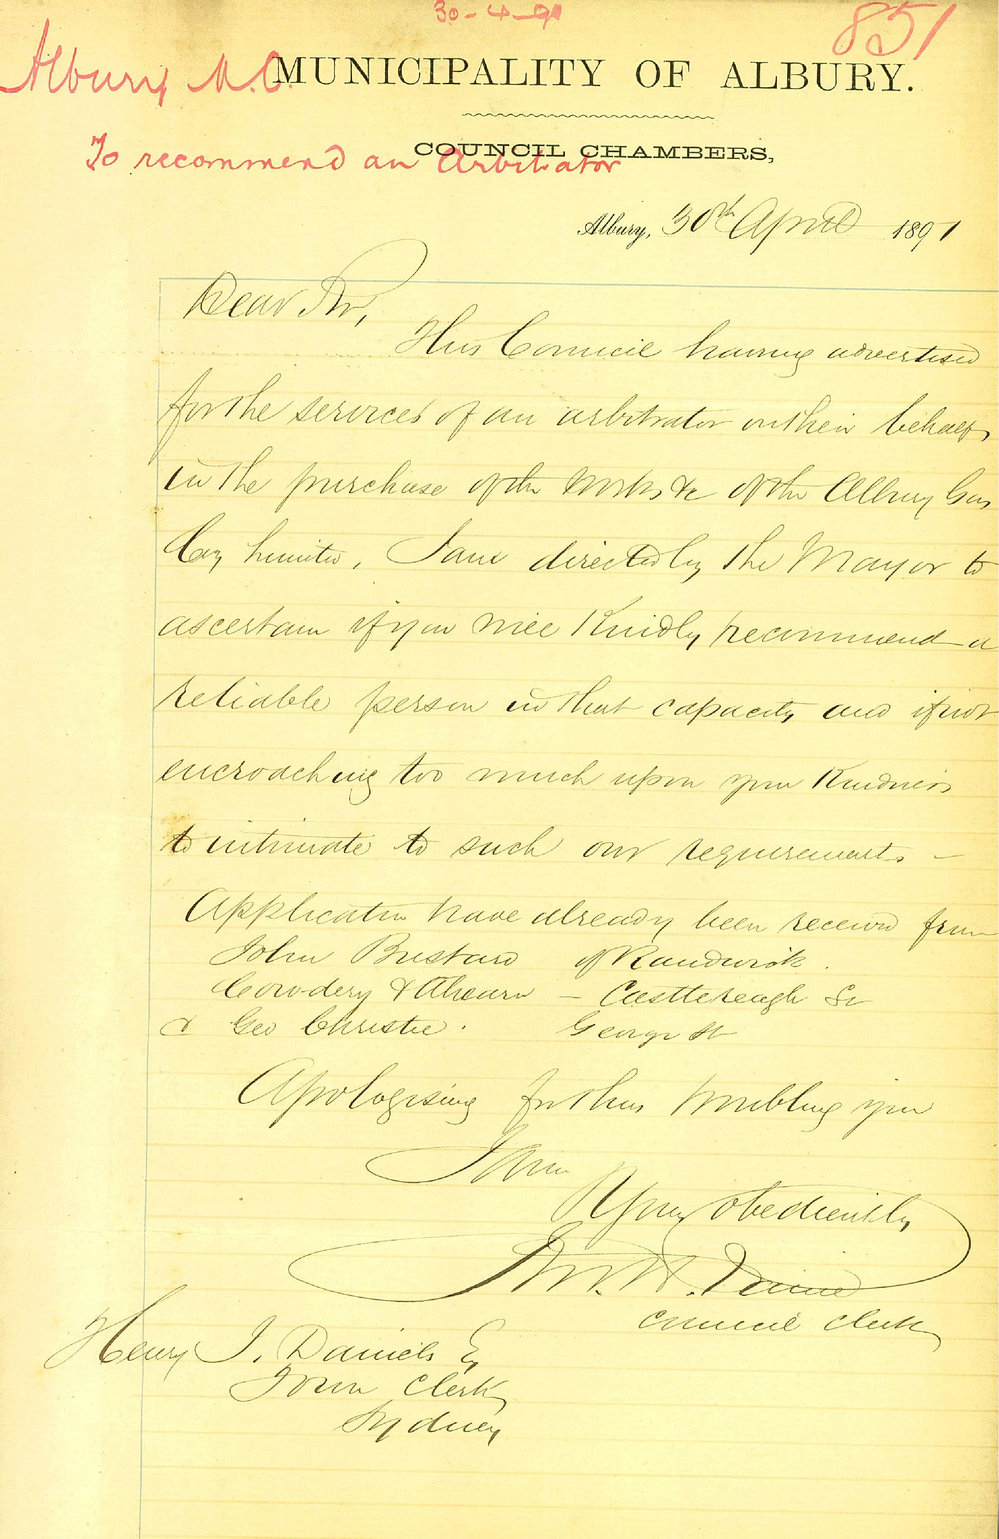 30-4-91
851
Albury M.C.
MUNICIPALITY OF ALBURY.
To recommend an Arbitrator
COUNCIL CHAMBERS,
Albury, 30th April 1891
Dear Sir,
This Council having advertised
for the services of an arbitrator on their behalf,
in the purchase of the Works &c of the Albury Gas
Coy Limited, I am directed by the Mayor to
ascertain if you will kindly recommend a
reliable person in that capacity and if not
encroaching too much upon your kindness
to intimate to such our requirements –
Application have already been received from
John Bustard of Randwick.
Cowdery & Ahearn – Castlereagh St
& Geo Christie. George St
Apologising for thus troubling you
I am
Yours obediently
Council Clerk
Henry J. Daniels Esq
Town Clerk,
Sydney